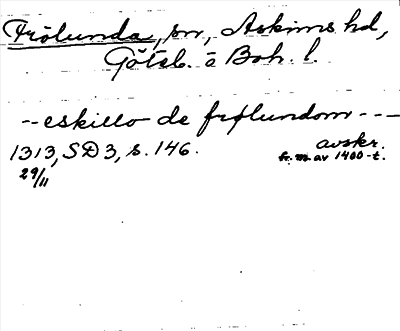 Frölunda, sn, Askims hd,
Göteb. o Boh. l.
-- eskillo de frølundom ---
1313, SD 3, s. 146. avskr.
29/11 fr. m. av 1400-t.